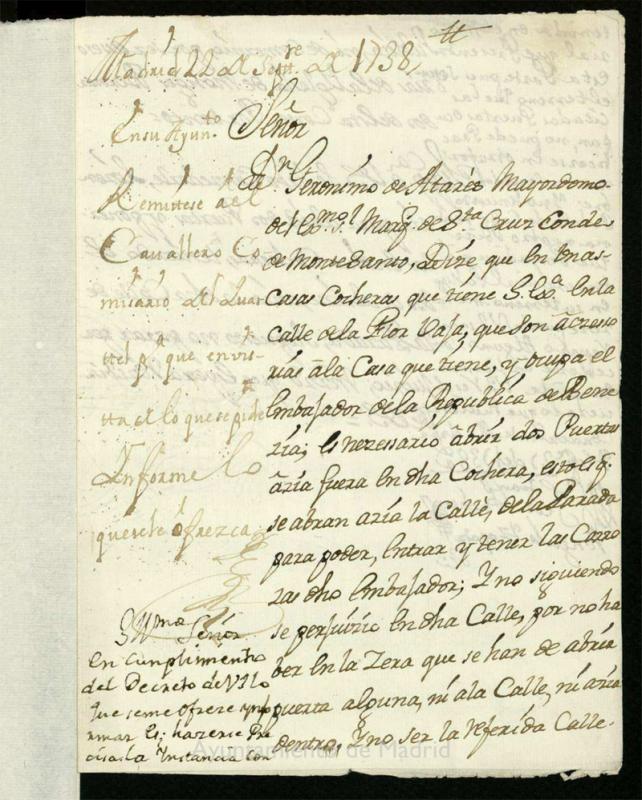 Madrid 22 de Sepre. de 1738
En su Ayunto.
Remitese a el
Cavallero Co
misario del quar
tel pa. que en vis-
ta de lo que se pide
Informe lo
que se le ofrezca
Señor
Dn. Geronimo de Mayordomo
del Exmo. Sr. Marqs. de Sta Cruz Conde
de Montesanto, Dize que en unas
Casas Cocheras que tiene S. Exa. en la
Calle de la Flor Vaja, que son acceso
rias â la Casa que tiene, y ocupa el
Embajador de la Republica de Bene
zia; es necessario âbrir dos Puertas
âzia fuera en dha Cochera, esto es q.
se abran azia la Calle, de la Parada
para poder, entrar y tener las Carro
zas dho Embajador; Y no siguiendo
se perjuizio en dha Calle, por no ha
ber en la Zera que se han de abrir
puerta alguna, ni a la Calle, ni azia
dentro, Y no ser la referida Calle
Illmo. Señor
En Cumplimiento
del Decreto de V.I. lo
que se me ofreze ynfo
rmar es; hazerse Pre
cisa la Instancia con
Ayuntamiento de Madrid